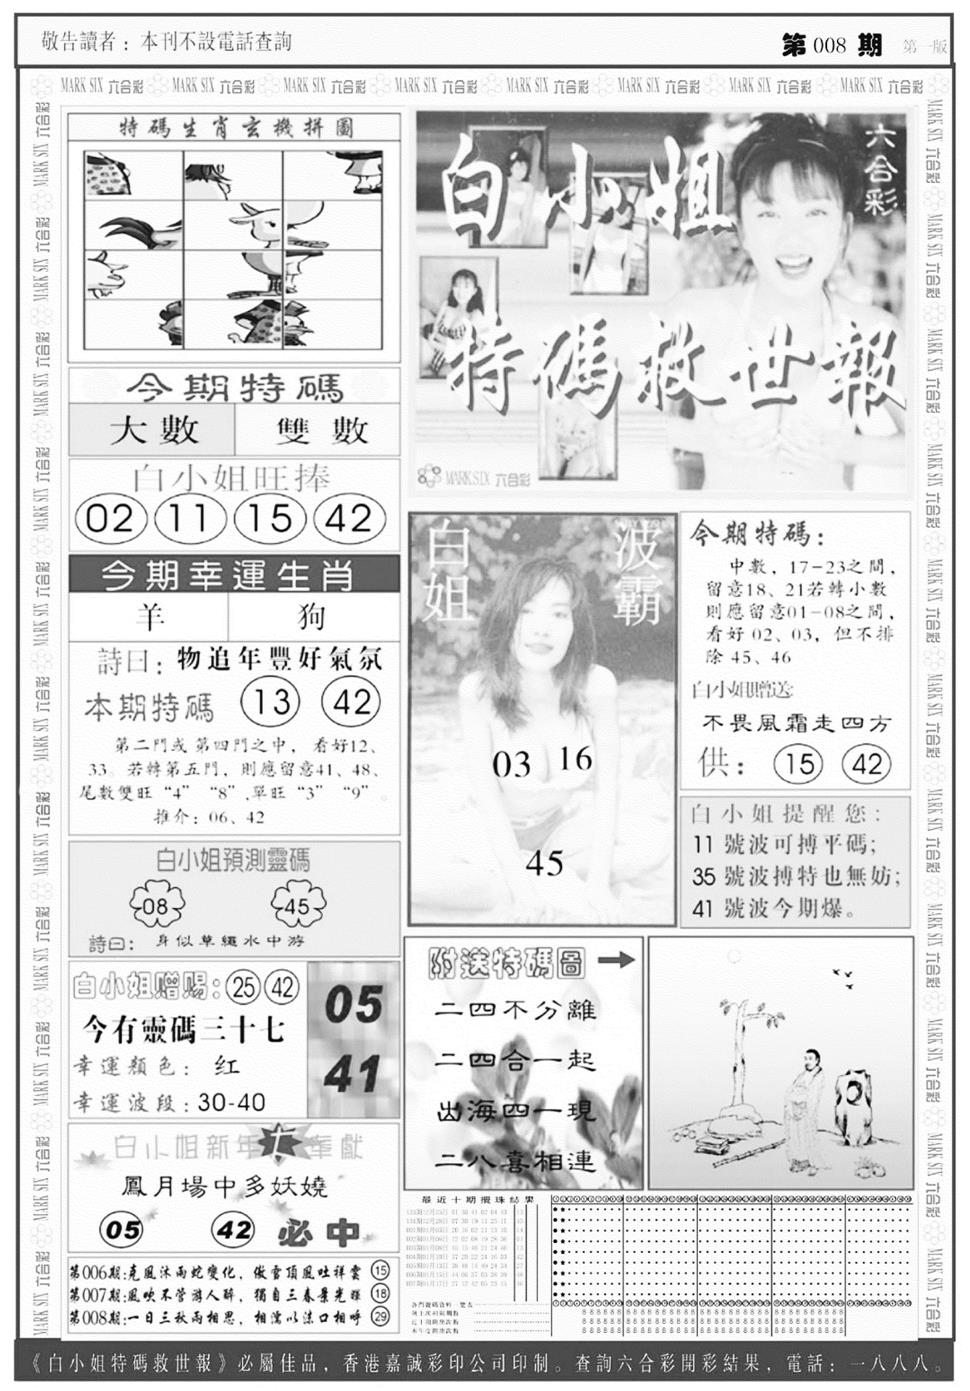 敬告讀者：本刊不設電話查詢
第 008 期 第一版
MARK SIX 六合彩 MARK SIX 六合彩 MARK SIX 六合彩 MARK SIX 六合彩 MARK SIX 六合彩 MARK SIX 六合彩 MARK SIX 六合彩 MARK SIX 六合彩
特碼生肖玄機拼圖
六合彩
白小姐
特碼救世報
MARK SIX 六合彩
今期特碼
大數 雙數
白小姐旺捧
02 11 15 42
今期幸運生肖
羊 狗
詩曰：物追年豐好氣氛
本期特碼 13 42
第二門或第四門之中，看好12、
33。若轉第五門，則應留意41、48、
尾數雙旺“4”“8”,單旺“3”“9”。
推介：06、42
白小姐預測靈碼
08 45
詩曰：身似草繩水中游
白小姐赠赐：25 42
今有靈碼三十七
幸運顏色：红
幸運波段：30-40
05
41
白小姐新年 奉獻
鳳月場中多妖嬈
05 42 必中
第006期:克風沐雨蛇變化，傲雪頂風吐祥雲 15
第007期:風吹不管游人醉，獨自三春景光 18
第008期:一日三秋兩相思，相濡以沫口相呼 29
白姐
波霸
03 16
45
今期特碼：
中數，17-23之間，
留意18、21若轉小數
則應留意01-08之間，
看好 02、03，但不排
除 45、46
白小姐贈送:
不畏風霜走四方
供：15 42
白小姐提醒您：
11 號波可搏平碼;
35 號波搏特也無妨;
41 號波今期爆。
附送特碼圖
二四不分離
二四合一起
出海四一現
二八喜相連
最近十期攪珠結果
《白小姐特碼救世報》必屬佳品，香港嘉誠彩印公司印制。查詢六合彩開彩結果，電話：一八八八。